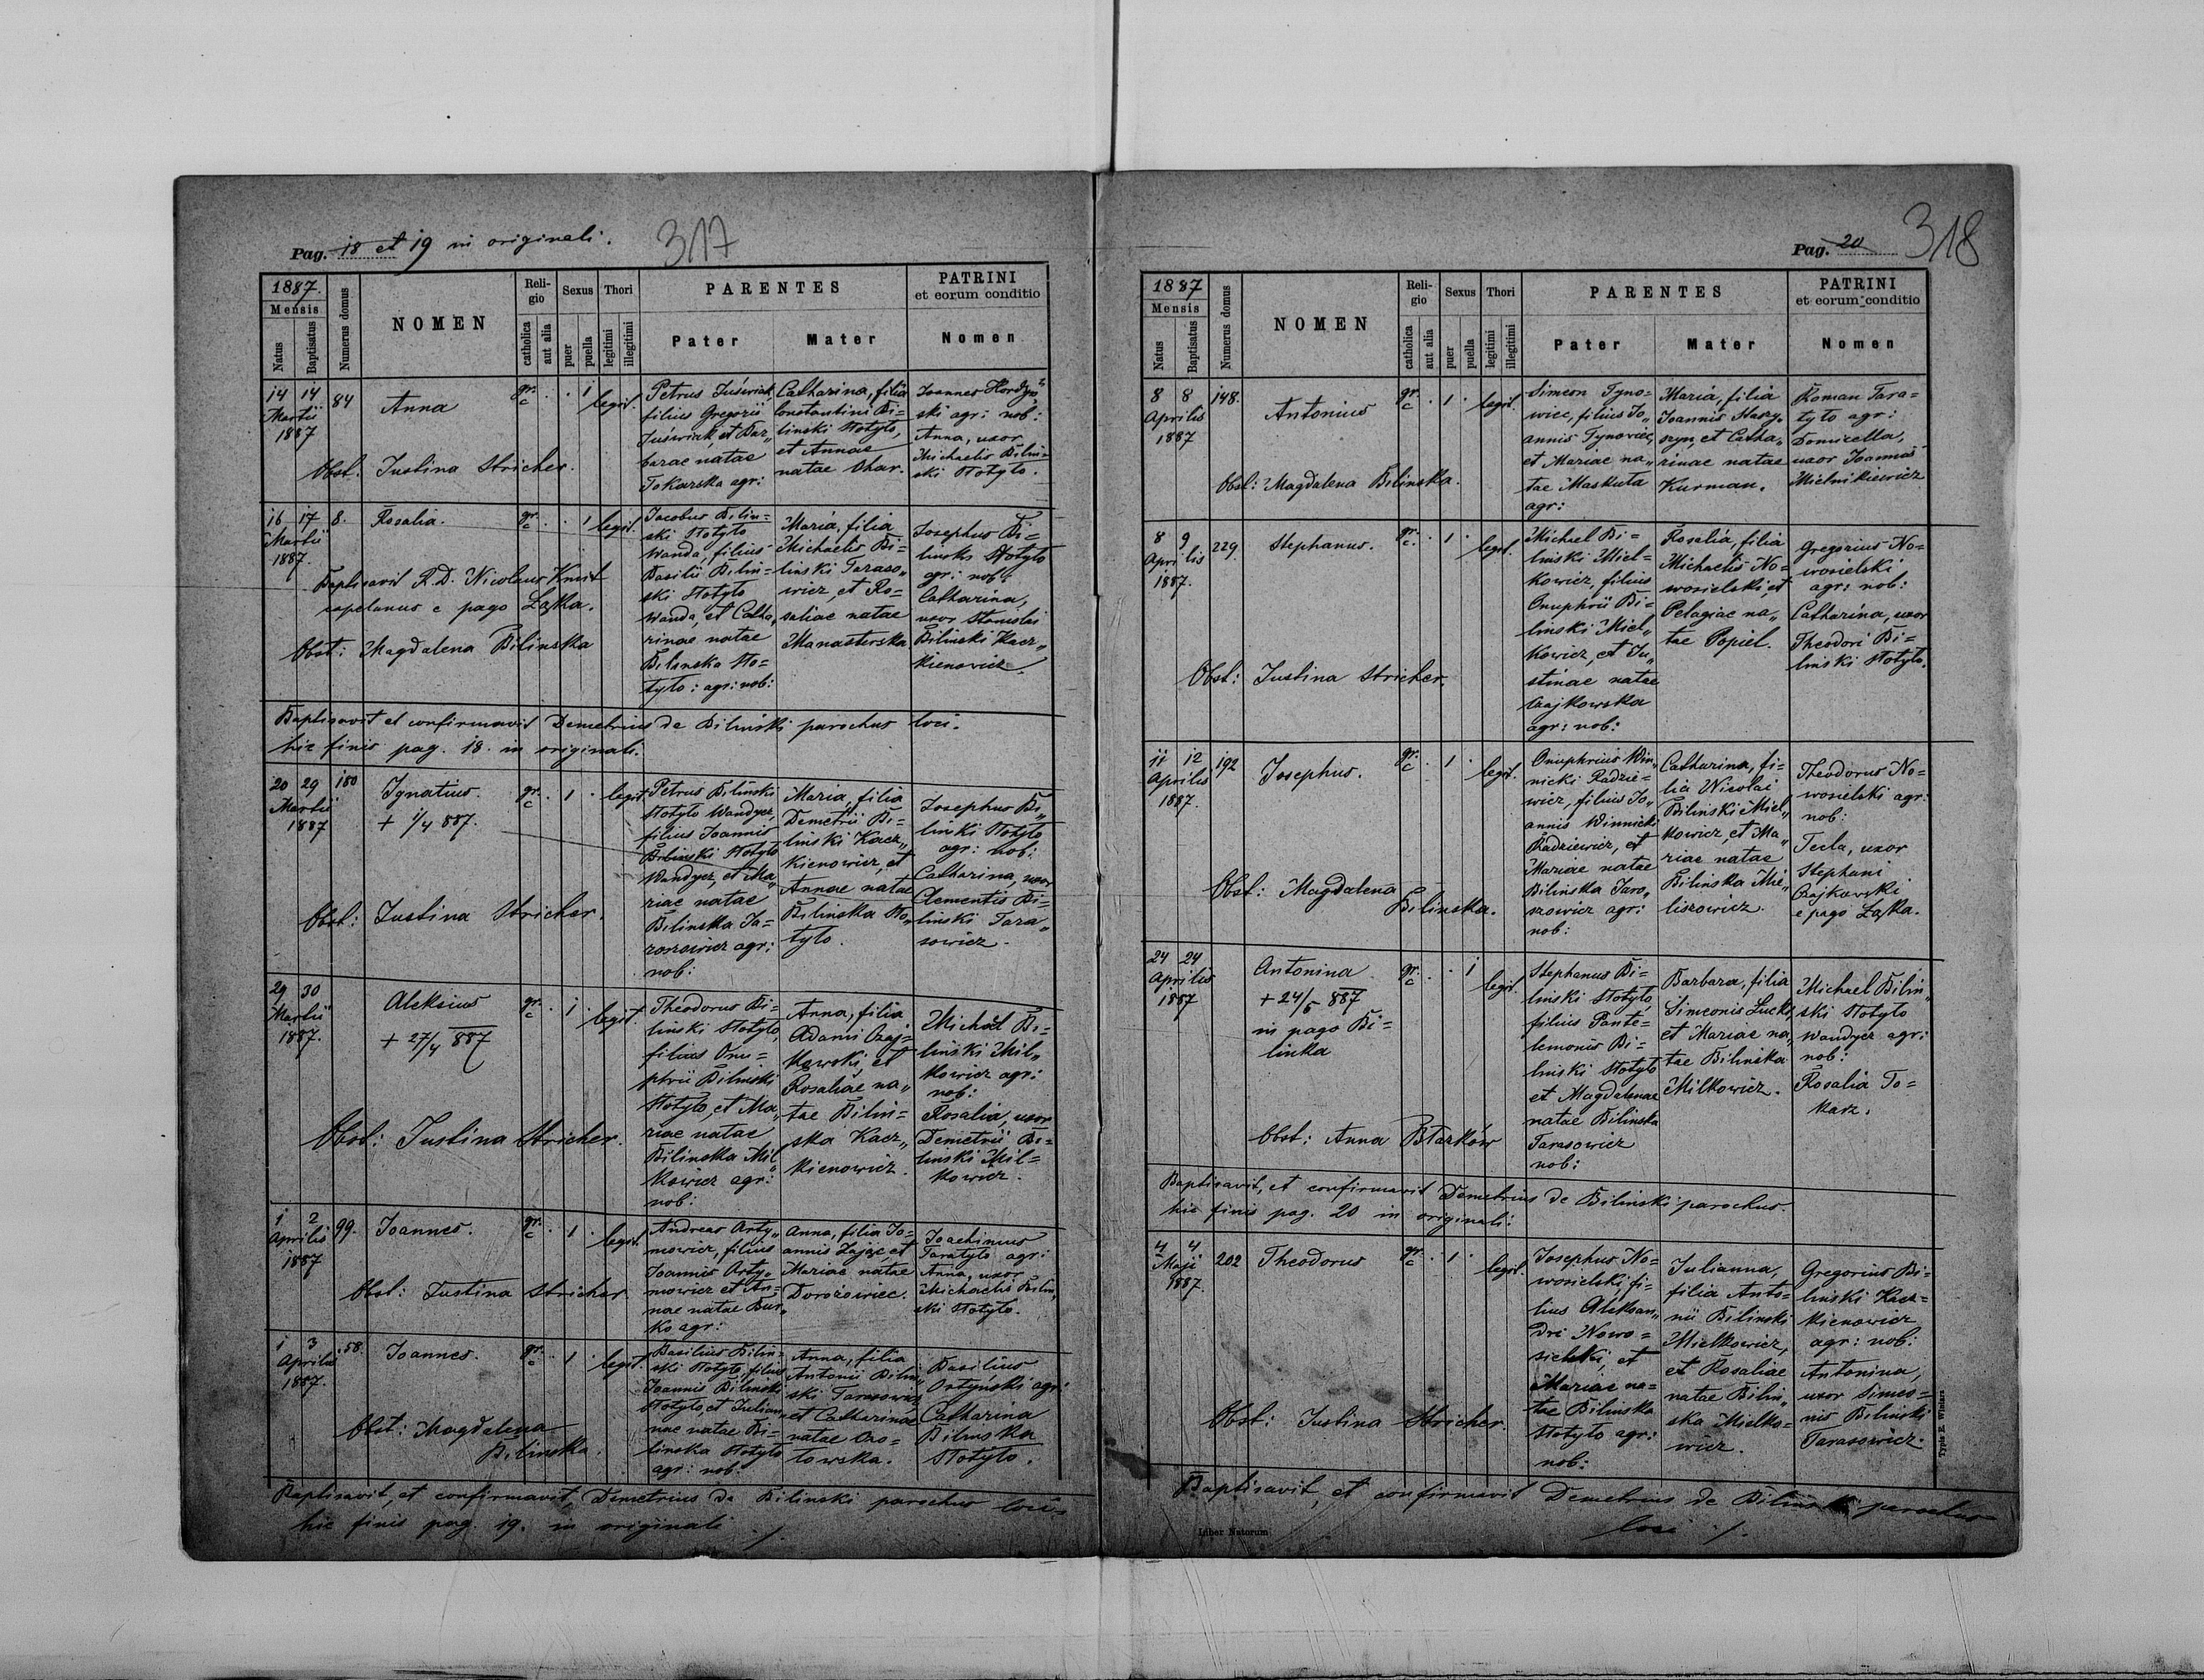 Pag. 18 et 19 in originali.
317
1887.
Mensis
Natus
Baptisatus
Numerus domus
NOMEN
Religio
catholica
aut alia
Sexus
puer
puella
Thori
legitimi
illegitimi
PARENTES
Pater
Mater
PATRINI
et eorum conditio
Nomen
14 14
Martii
1887
84
Anna
Obst. Justina Stricher.
gr.
c
1
legit.
Petrus
filius Gregorii
et Bar„
barae natae
Tokarska agr:
Catharina, filia
Constantini Bi=
linski Stotyto,
et Annae
natae Char.
Joannes
ski agr: nob:
Anna, uxor
Michaelis Bilin=
ski Stotyto.
16 17
Martii
1887.
8.
Rosalia.
Baptisavit R.D. Nicolaus Knut
capelanus e pago Łąka.
Obst: Magdalena Bilinska
gr.
c
1
legit.
Jacobus Bilin=
ski Stotyto
Wanda, filius
Basilii Bilin=
ski Stotyto
Wanda, et Catha„
rinae natae
Bilinska Sto=
tyto: agr: nob:
Maria, filia
Michaelis Bi=
linski Taraso„
wicz, et Ro=
saliae natae
Manasterska
Josephus Bi=
linski Stotyto
agr: nob:
Catharina,
uxor Stanislai
Bilinski Kacz„
kienowicz.
Baptisavit et confirmavit Demetrius de Bilinski parochus loci.
hic finis pag. 18. in originali.
20 29
Martii
1887
180
Ignatius
+ 1/4 887.
Obst: Justina Stricher.
gr.
c
1
legit.
Petrus Bilinski
Stotyto Wandycz,
filius Joannis
Bilinski Stotyto
Wandycz, et Ma„
riae natae
Bilinska Ja=
roszewicz agr:
nob:
Maria, filia
Demetrii Bi=
linski Kacz„
kienowicz, et
Annae natae
Bilinska Sto„
tyto.
Josephus Bi„
linski Stotyto
agr: nob:
Catharina, uxor
Clementis Bi=
linski Tara„
sowicz.
29 30
Martii
1887.
Aleksius
+ 27/4 887
Obst: Justina Stricher.
gr.
c
1
legit.
Theodorus Bi=
linski Stotyto,
filius Onu=
phrii Bilinski
Stotyto, et Ma„
riae natae
Bilinska Mil„
kowicz agr:
nob:
Anna, filia
Adami Czaj=
kowski, et
Rosaliae na„
tae Bilin=
ska Kacz„
kienowicz.
Michał Bi=
linski Mil„
kowicz agr:
nob:
Rosalia, uxor
Demetrii Bi=
linski Mil=
kowicz.
1 2
Aprilis
1887
99.
Joannes.
Obst: Justina Stricher.
gr.
c
1
legit.
Andreas Arty„
mowicz, filius
Joannis Arty„
mowicz et An=
nae natae Bur„
ko agr:
Anna, filia Jo=
annis Zając, et
Mariae natae
Dorożowiec.
Joachimus
Taratyto agr:
Anna, uxor
Michaelis Bilin„
ski Stotyto.
1 3
Aprilis
1887.
58.
Joannes.
Obst: Magdalena
Bilinska.
gr.
c
1
legit.
Basilius Bilin=
ski Stotyto, filius
Joannis Bilinski
Stotyto, et Julian„
nae natae Bi=
linska Stotyto
agr: nob:
Anna, filia
Antonii Bilin„
ski Tarasowicz
et Catharinae
natae
Basilius
Ortyński agr:
Catharina
Bilinska
Stotyto.
Baptisavit, et confirmavit, Demetrius de Bilinski parochus loci=
hic finis pag. 19. in originali ./.
Pag. 20
318
1887
Mensis
Natus
Baptisatus
Numerus domus
NOMEN
Religio
catholica
aut alia
Sexus
puer
puella
Thori
legitimi
illegitimi
PARENTES
Pater
Mater
PATRINI
et eorum conditio
Nomen
8 8
Aprilis
1887
148.
Antonius
Obst: Magdalena Bilinska.
gr.
c
1
legit.
Simeon Tyno=
wiec, filius Jo„
annis Tynowiec,
et Mariae na„
tae Maskuta
agr:
Maria, filia
Joannis
et Catha„
rinae natae
Kurman.
Roman Tara=
tyto agr:
Domicella,
uxor Joannis
Mielnikiewicz
8 9
Aprilis
1887.
229
Stephanus.
Obst: Justina Stricher.
gr.
c
1
legit.
Michael Bi=
linski Miel=
kowicz, filius
Onuphrii Bi=
linski Miel„
kowicz, et Ju„
stinae natae
Czajkowska
agr: nob:
Rosalia, filia
Michaelis No=
wosielski, et
Pelagiae na„
tae Popiel.
Gregorius No=
wosielski
agr: nob:
Catharina, uxor
Theodori Bi=
linski Stotyto.
11 12
Aprilis
1887.
192
Josephus.
Obst: Magdalena
Bilinska.
gr.
c
1
legit.
Onuphrius Win„
nicki Radzie=
wicz, filius Jo„
annis Winnicki
Radziewicz, et
Mariae natae
Bilinska Jaro„
szowicz agr:
nob:
Catharina, fi=
lia Nicolai
Bilinski Miel„
kowicz, et Ma„
riae natae
Bilinska Mie„
liszowicz.
Theodorus No=
wosielski agr:
nob:
Tecla, uxor
Stephani
Czajkowski
e pago Łąka.
24 24
Aprilis
1887
Antonina
+ 24/5 887
in pago Bi=
linka
Obst: Anna Błazków
gr.
c
1
legit.
Stephanus Bi=
linski Stotyto,
filius Pante=
lemonis Bi=
linski Stotyto
et Magdalenae
natae Bilinska
Tarasowicz
nob:
Barbara, filia
Simeonis Łucki,
et Mariae na„
tae Bilinska
Milkowicz.
Michael Bilin„
ski Stotyto
Wandycz agr:
nob:
Rosalia To=
karz.
Baptisavit, et confirmavit Demetrius de Bilinski parochus.
hic finis pag. 20 in originali:
4 4
Maji
1887.
202
Theodorus
Obst: Justina Stricher.
gr.
c
1
legit.
Josephus No=
wosielski, fi=
lius Aleksan„
dri Nowo=
sielski, et
Mariae na=
tae Bilinska
Stotyto agr:
nob:
Julianna,
filia Anto=
nii Bilinski
Mielkowicz,
et Rosaliae
natae Bilin„
ska Mielko=
wicz.
Gregorius Bi=
linski Kacz=
kienowicz
agr: nob:
Antonina,
uxor Simeo=
nis Bilinski
Tarasowicz.
Baptisavit, et confirmavit Demetrius de Bilinski parochus
loci ./.
Liber Natorum
Typis E. Winiarz